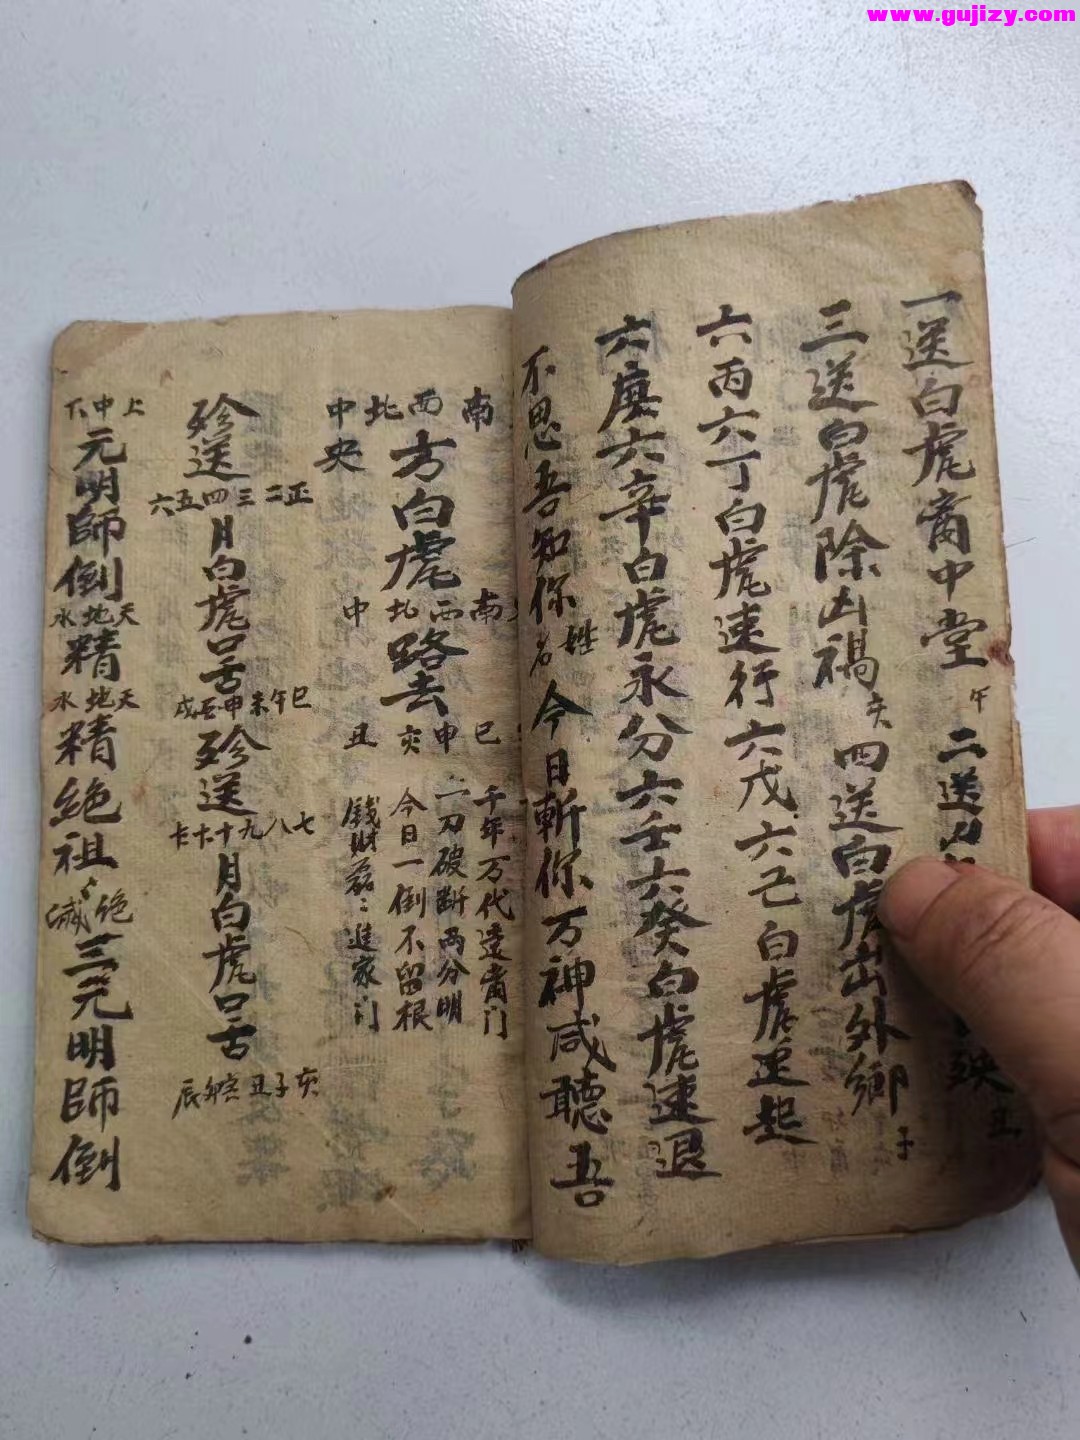 www.gujizy.com
一送白虎离中堂 午 二送 殃 丑
三送白虎除凶禍 亥 四送白虎出外鄉 子
六丙六丁白虎速行六戊六己白虎速起
六庚六辛白虎永分六壬六癸白虎速退
不思吾知你姓名今日斬你万神咸聽吾
南西北中央
方白虎路去
南西北中
巳申亥丑
千年万代遠离门
一刀破断两分明
今日一倒不留根
錢財茲〻進家门
殄送
正二三四五六
月白虎口舌
巳午未申酉戌
殄送
七八九十
月白虎口舌
亥子丑寅卯辰
上中下
元明師倒
天地水
精
天地水
精絕祖
絕滅
三元明師倒